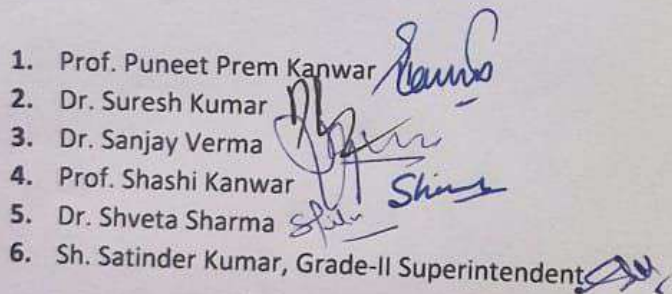 1. Prof. Puneet Prem Kanwar
2. Dr. Suresh Kumar
3. Dr. Sanjay Verma
4. Prof. Shashi Kanwar
5. Dr. Shveta Sharma
6. Sh. Satinder Kumar, Grade-II Superintendent